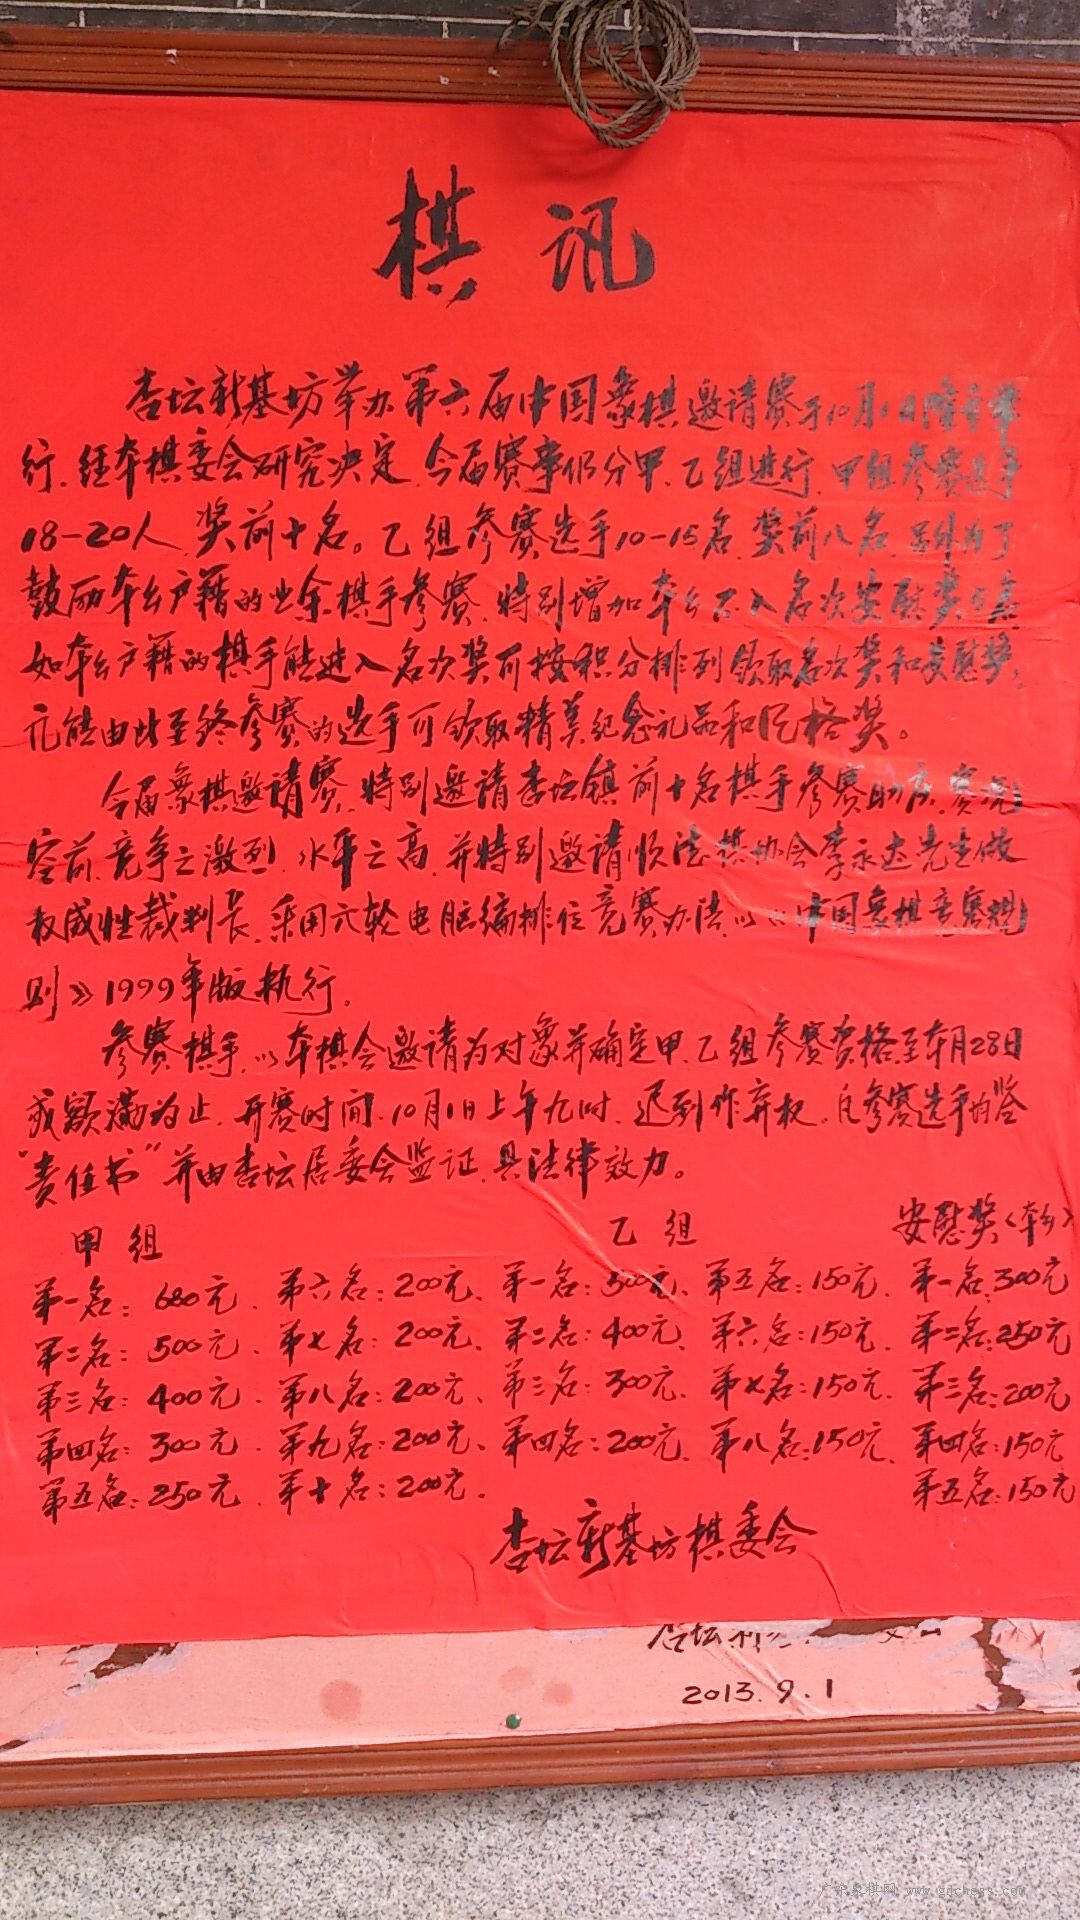 棋讯
杏坛新基坊举办第六届中国象棋邀请赛于10月1日隆重举
行.经本棋委会研究决定.今届赛事仍分甲.乙组进行.甲组参赛选手
18-20人.奖前十名。乙组参赛选手10-15名.奖前八名.另外为了
鼓励本乡户籍的业余棋手参赛.特别增加本乡不入名次安慰奖5名
如本乡户籍的棋手能进入名次奖可按积分排列领取名次奖和安慰奖,
凡能由此至终参赛的选手可领取精美纪念礼品和风格奖。
今届象棋邀请赛.特别邀请杏坛镇前十名棋手参赛助庆.赛况
空前.竞争之激烈.水平之高.并特别邀请顺德棋协会李永达先生做
权威性裁判长.采用六轮电脑编排位竞赛办法.以《中国象棋竞赛规
则》1999年版执行.
参赛棋手.以本棋会邀请为对象并确定甲.乙组参赛资格至本月28日
或额满为止.开赛时间.10月1日上午九时.迟到作弃权.凡参赛选手均签
“责任书”并由杏坛居委会监证.具法律效力。
甲组 乙组 安慰奖(本乡)
第一名:680元.第六名:200元.第一名:500元.第五名:150元.第一名:300元
第二名:500元.第七名:200元.第二名:400元.第六名:150元.第二名:250元
第三名:400元.第八名:200元.第三名:300元.第七名:150元.第三名:200元
第四名:300元.第九名:200元.第四名:200元.第八名:150元.第四名:150元
第五名:250元.第十名:200元.第五名:150元
杏坛新基坊棋委会
2013.9.1
广东象棋网 www.gdchess.com